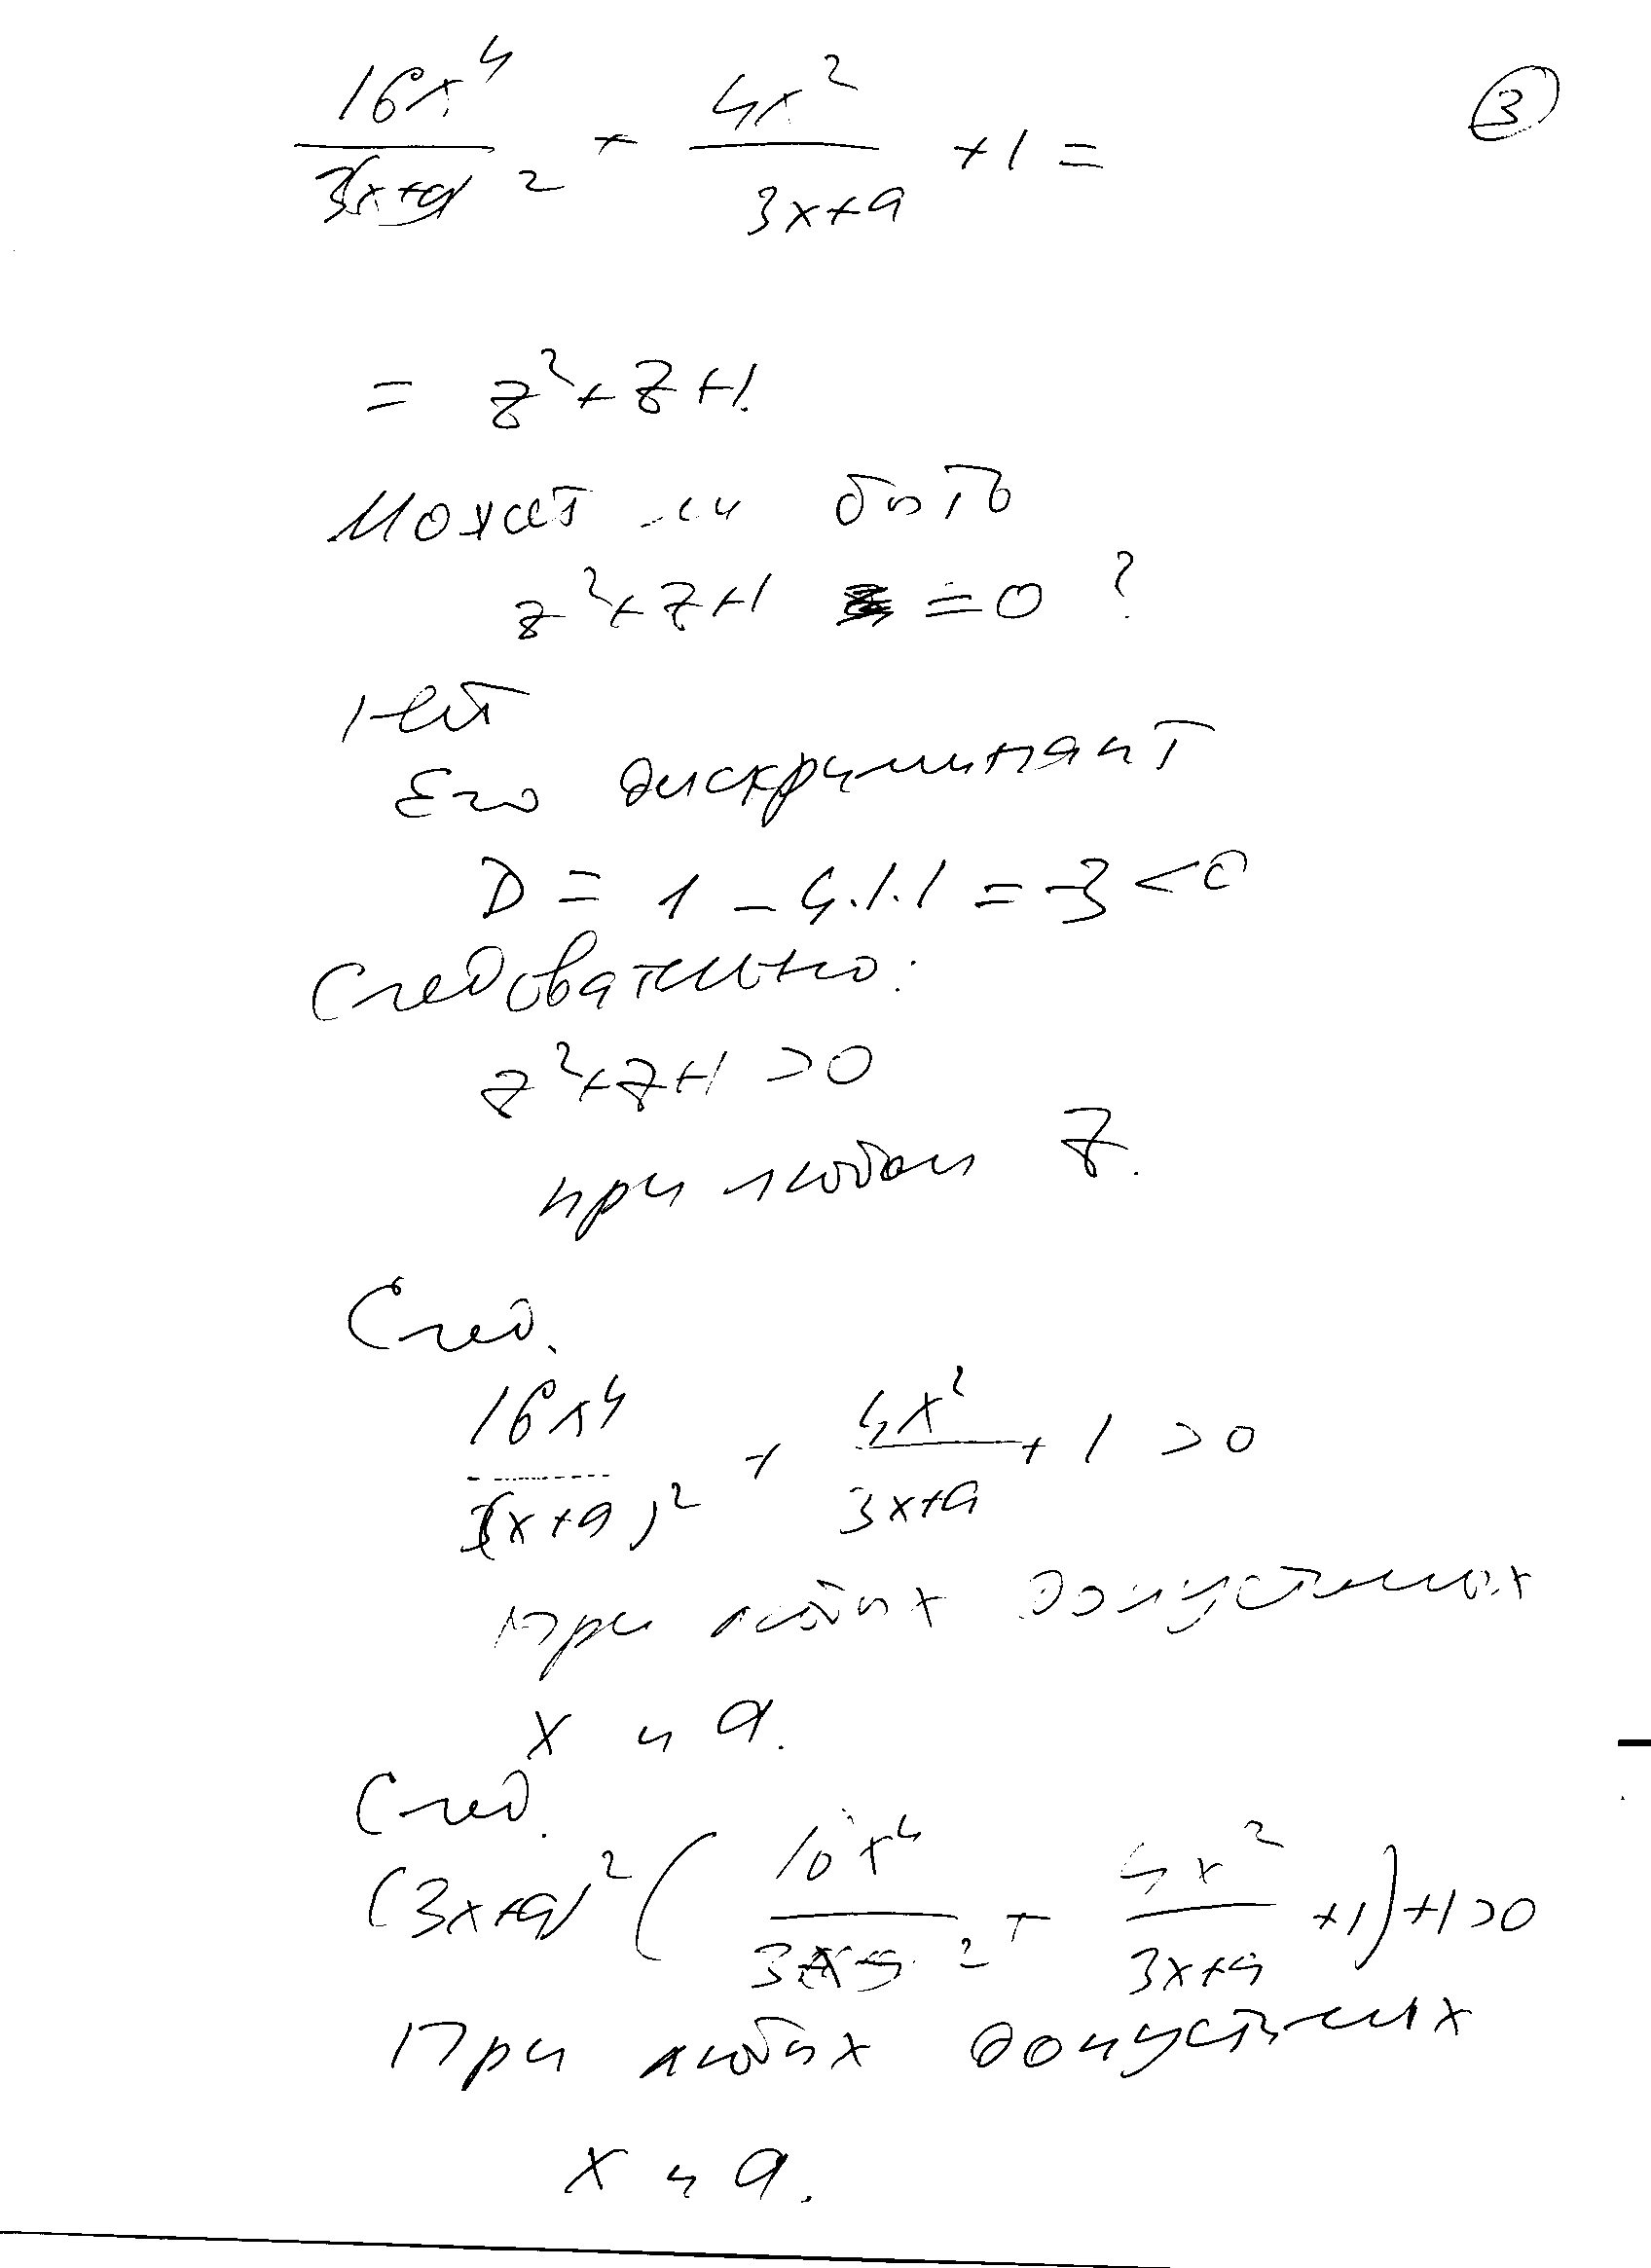 ③
16x⁴/(3x+a)² + 4x²/(3x+a) + 1 =
= z² + z + 1.
Может ли быть
z² + z + 1 = 0 ?
нет
Его дискриминант
D = 1 - 4·1·1 = -3 < 0
Следовательно:
z² + z + 1 > 0
при любом z.
След.
16x⁴/(3x+a)² + 4x²/(3x+a) + 1 > 0
при любых допустимых
x и a.
След.
(3x+a)² (16x⁴/(3x+a)² + 4x²/(3x+a) + 1) + 1 > 0
При любых допустимых
x и a.